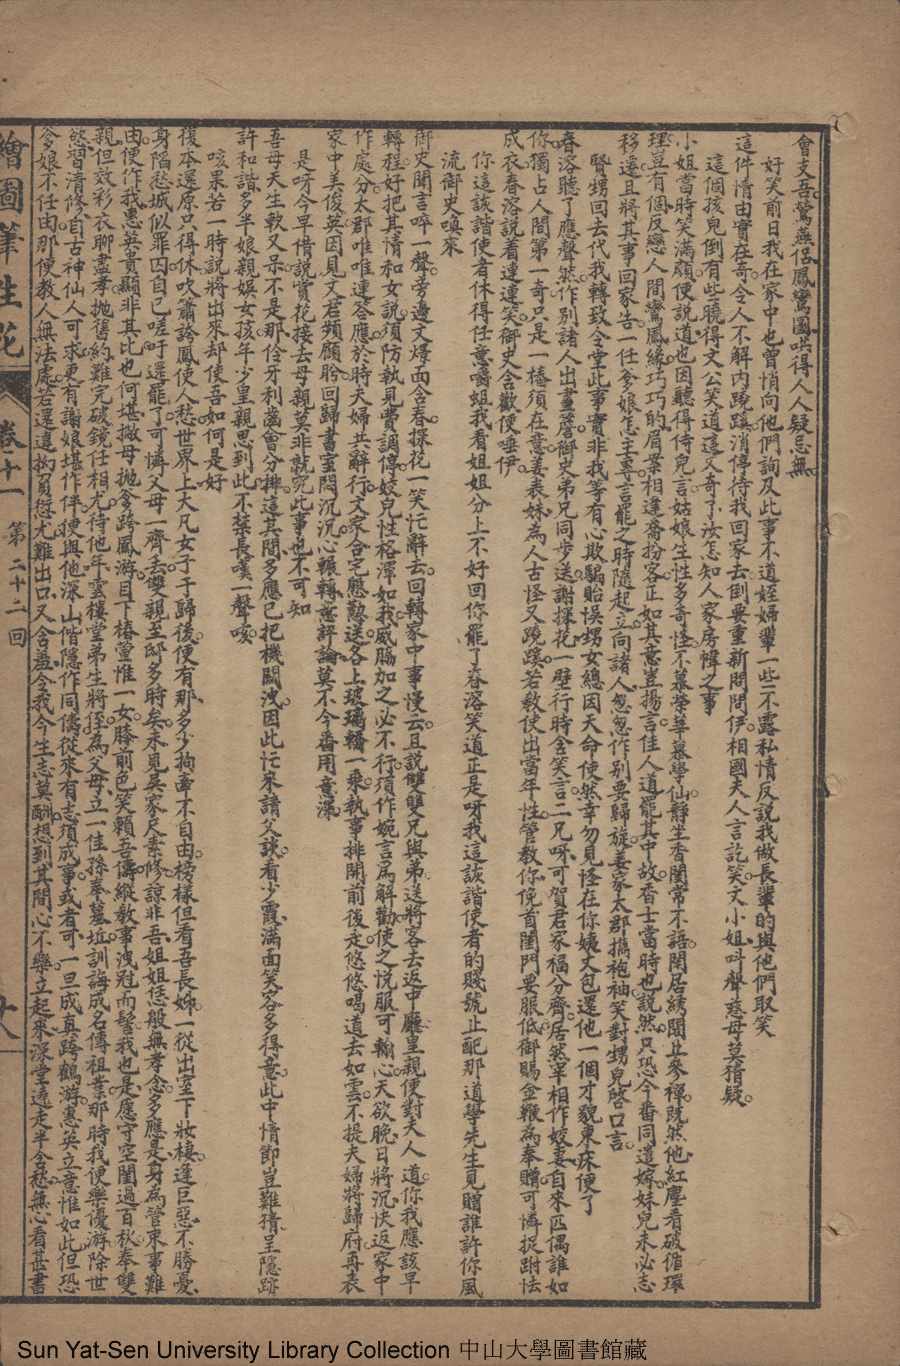 會支吾鶯燕侶鳳鸞圖哄得人人疑忌無
好笑前日我在家中也曾悄向他們詢及此事不道姪婦輩一些不露私情反說我做長輩的與他們取笑
這件情由實在奇令人不解內蹺蹊消停待我回家去倒要重新問問伊相國夫人言訖笑文小姐叫聲慈母莫猜疑
這個孩兒倒有些曉得文公笑道這又奇了汝怎知人家房幃之事
小姐當時笑滿顏便說道也因聽得侍兒言姑娘生性多奇怪不慕榮華慕學仙靜坐香閨常不語閑居綉閣止參禪既然他紅塵看破循環
理豈有個反戀人間鸞鳳緣巧巧的眉案相逢喬扮客正如其意豈揚言佳人道罷其中故香士當時也說然只恐今番同遣嫁妹兒未必志
移遷且將其事回家告一任爹娘怎主專言罷之時隨起立向諸人怱怱作別要歸旋姜家太郡擕袍袖笑對甥兒啓口言
賢甥回去代我轉致令堂此事實非我等有心欺騙貽悞甥女總因天命使然幸勿見怪在你姨丈包還他一個才貌東床便了
春溶聽了應聲然作別諸人出畫簷御史弟兄同步送謝探花一壁行時含笑言二兄呀可賀君家福分齊居然宰相作姣妻自來匹偶誰如
你獨占人間第一奇只是一樁須在意姜表妹為人古怪又蹺蹊若教使出當年性管教你俛首閨門要服低御賜金鞭為奉贈可憐捉跗怯
成衣春溶說着連連笑御史含歡便唾伊
你這詼諧使者休得任意嚼蛆我看姐姐分上不好回你罷了春溶笑道正是呀我這詼諧使者的賤號止配那道學先生見贈誰許你風
流御史喚來
御史聞言啐一聲旁邊文爗面含春探花一笑忙辭去回轉家中事慢云且說雙雙兄與弟送將客去返中廳皇親便對夫人道你我應該早
轉程好把其情和女說須防執見費調停姣兒性格渾如我威脇加之必不行須作婉言爲解勸使之悅服可輸心天欲晚日將沉快返家中
作處分太郡唯唯連答應於時夫婦共辭行文家合宅慇懃送各上玻璃轎一乘執事排開前後走悠悠喝道去如雲不提夫婦將歸府再表
家中美俊英因見文君頻顧盻回歸書室悶沉沉心輾轉意評論莫不今番用意深
是呀今早借說賞花接去母親莫非就究此事也不可知
吾母天生軟又呆不是那伶牙利齒會分排這其間多應已把機關洩因此忙來請父談看少霞滿面笑容多得意此中情節豈難猜呈隱跡
許和諧多半娘親娛女孩年少皇親思到此不禁長嘆一聲唉
咳果若一時說將出來却使吾如何是好
復本還原只得休吹簫誇鳳使人愁世界上大凡女子于歸後便有那多少拘牽不自由榜樣但看吾長姊一從出室下妝樓逢巨惡不勝憂
身陷愁城似罪囚自已嗟吁還罷了可憐父母一齊丢雙親至邸多時矣未見吳家尺素修諒非吾姐姐恁般無孝念多應是身為管束事難
由便作我惠英貴顯非其比也何堪撇母拋爹跨鳳游目下椿萱惟一女膝前色笑賴吾儔縱教事洩冠而髻我也是應守空閨過百秋奉雙
親但效彩衣聊盡孝拋舊約難完破鏡任相尤待他年雲樓堂弟生將侄為父母立一佳孫奉墓坵訓誨成名傳祖業那時我便樂優游除世
慾習清修自古神仙人可求更有謝娘堪作伴便與他深山偕隱作同儔從來有志須成事或者可一旦成真跨鶴游惠英立意惟如此但恐
爹娘不任由那便教人無法處若還違拗負愆尤難出口又含羞令我今生志莫酬想到其間心不樂立起來深堂遶走半含愁無心看甚書
繪圖筆生花
卷十一
第二十二回
廿八
Sun Yat-Sen University Library Collection 中山大學圖書館藏